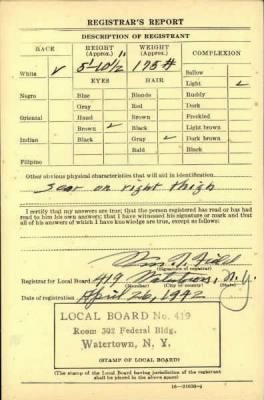 REGISTRAR'S REPORT
DESCRIPTION OF REGISTRANT
RACE HEIGHT (Approx.) WEIGHT (Approx.) COMPLEXION
White ✓ 5' 10½" 175# Sallow
EYES HAIR Light ✓
Negro Blue Blonde Ruddy
Gray Red Dark
Oriental Hazel Brown Freckled
Brown ✓ Black Light brown
Indian Black Gray ✓ Dark brown
Bald Black
Filipino
Other obvious physical characteristics that will aid in identification
Scar on right thigh
I certify that my answers are true; that the person registered has read or has had
read to him his own answers; that I have witnessed his signature or mark and that
all of his answers of which I have knowledge are true, except as follows:
(Signature of registrar)
Registrar for Local Board 419 Watertown, N.Y.
(Number) (City or county) (State)
Date of registration April 26, 1942
LOCAL BOARD No. 419
Room 302 Federal Bldg.
Watertown, N. Y.
(STAMP OF LOCAL BOARD)
(The stamp of the Local Board having jurisdiction of the registrant
shall be placed in the above space.)